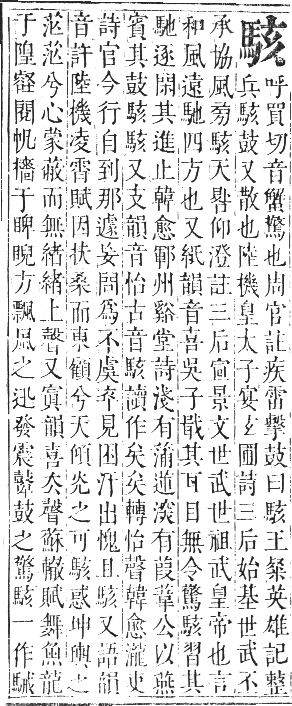 駭呼買切音蟹驚也周官註疾雷擊鼓曰駭王粲英雄記整
兵駭鼓又散也陸機皇太子宴玄圃詩三后始基世武丕
承協風旁駭天晷仰澄註三后宣景文世武世祖武皇帝也言
和風遠馳四方也又紙韻音喜吳子戢其耳目無令驚駭習其
馳逐閑其進止韓愈鄆州谿堂詩淺有蒲蓮深有葭葦公以燕
賓其鼓駭駭又支韻音怡古音駭讀作矣矣轉怡聲韓愈瀧吏
詩官今行自到那遽妄問爲不虞卒見困汗出愧且駭又語韻
音許陸機凌霄賦因扶桑而東顧兮天傾光之可駭惑坤輿之
茫茫兮心蒙蔽而無緒緒上聲又寘韻喜去聲蘇轍賦舞魚龍
于隍壑閱帆檣于睥睨方飄風之迅發震鼙鼓之驚駭一作駴